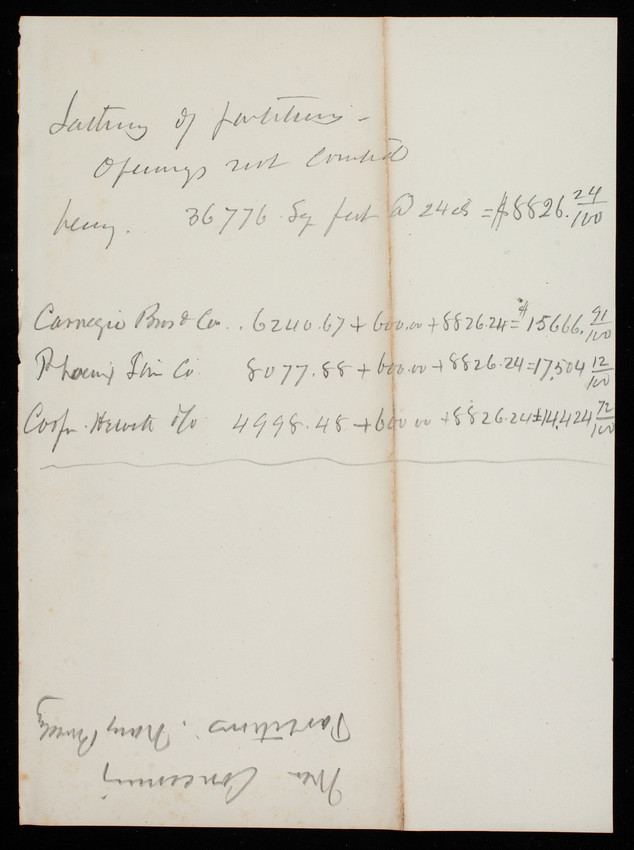 Lathing of partitions -
Openings not counted
heavy. 36776 Sq feet @ 24 cts = $8826. 24/100
Carnegie Bros & Co. . 6240.67 + 600.00 + 8826.24 = $15666. 91/100
Phoenix Iron Co. 8077.88 + 600.00 + 8826.24 = 17,504 12/100
Coop. Hewitt &Co 4998.48 + 600 00 + 8826.24 = $14,424 72/100
Mem Concerning
Partitions. Navy